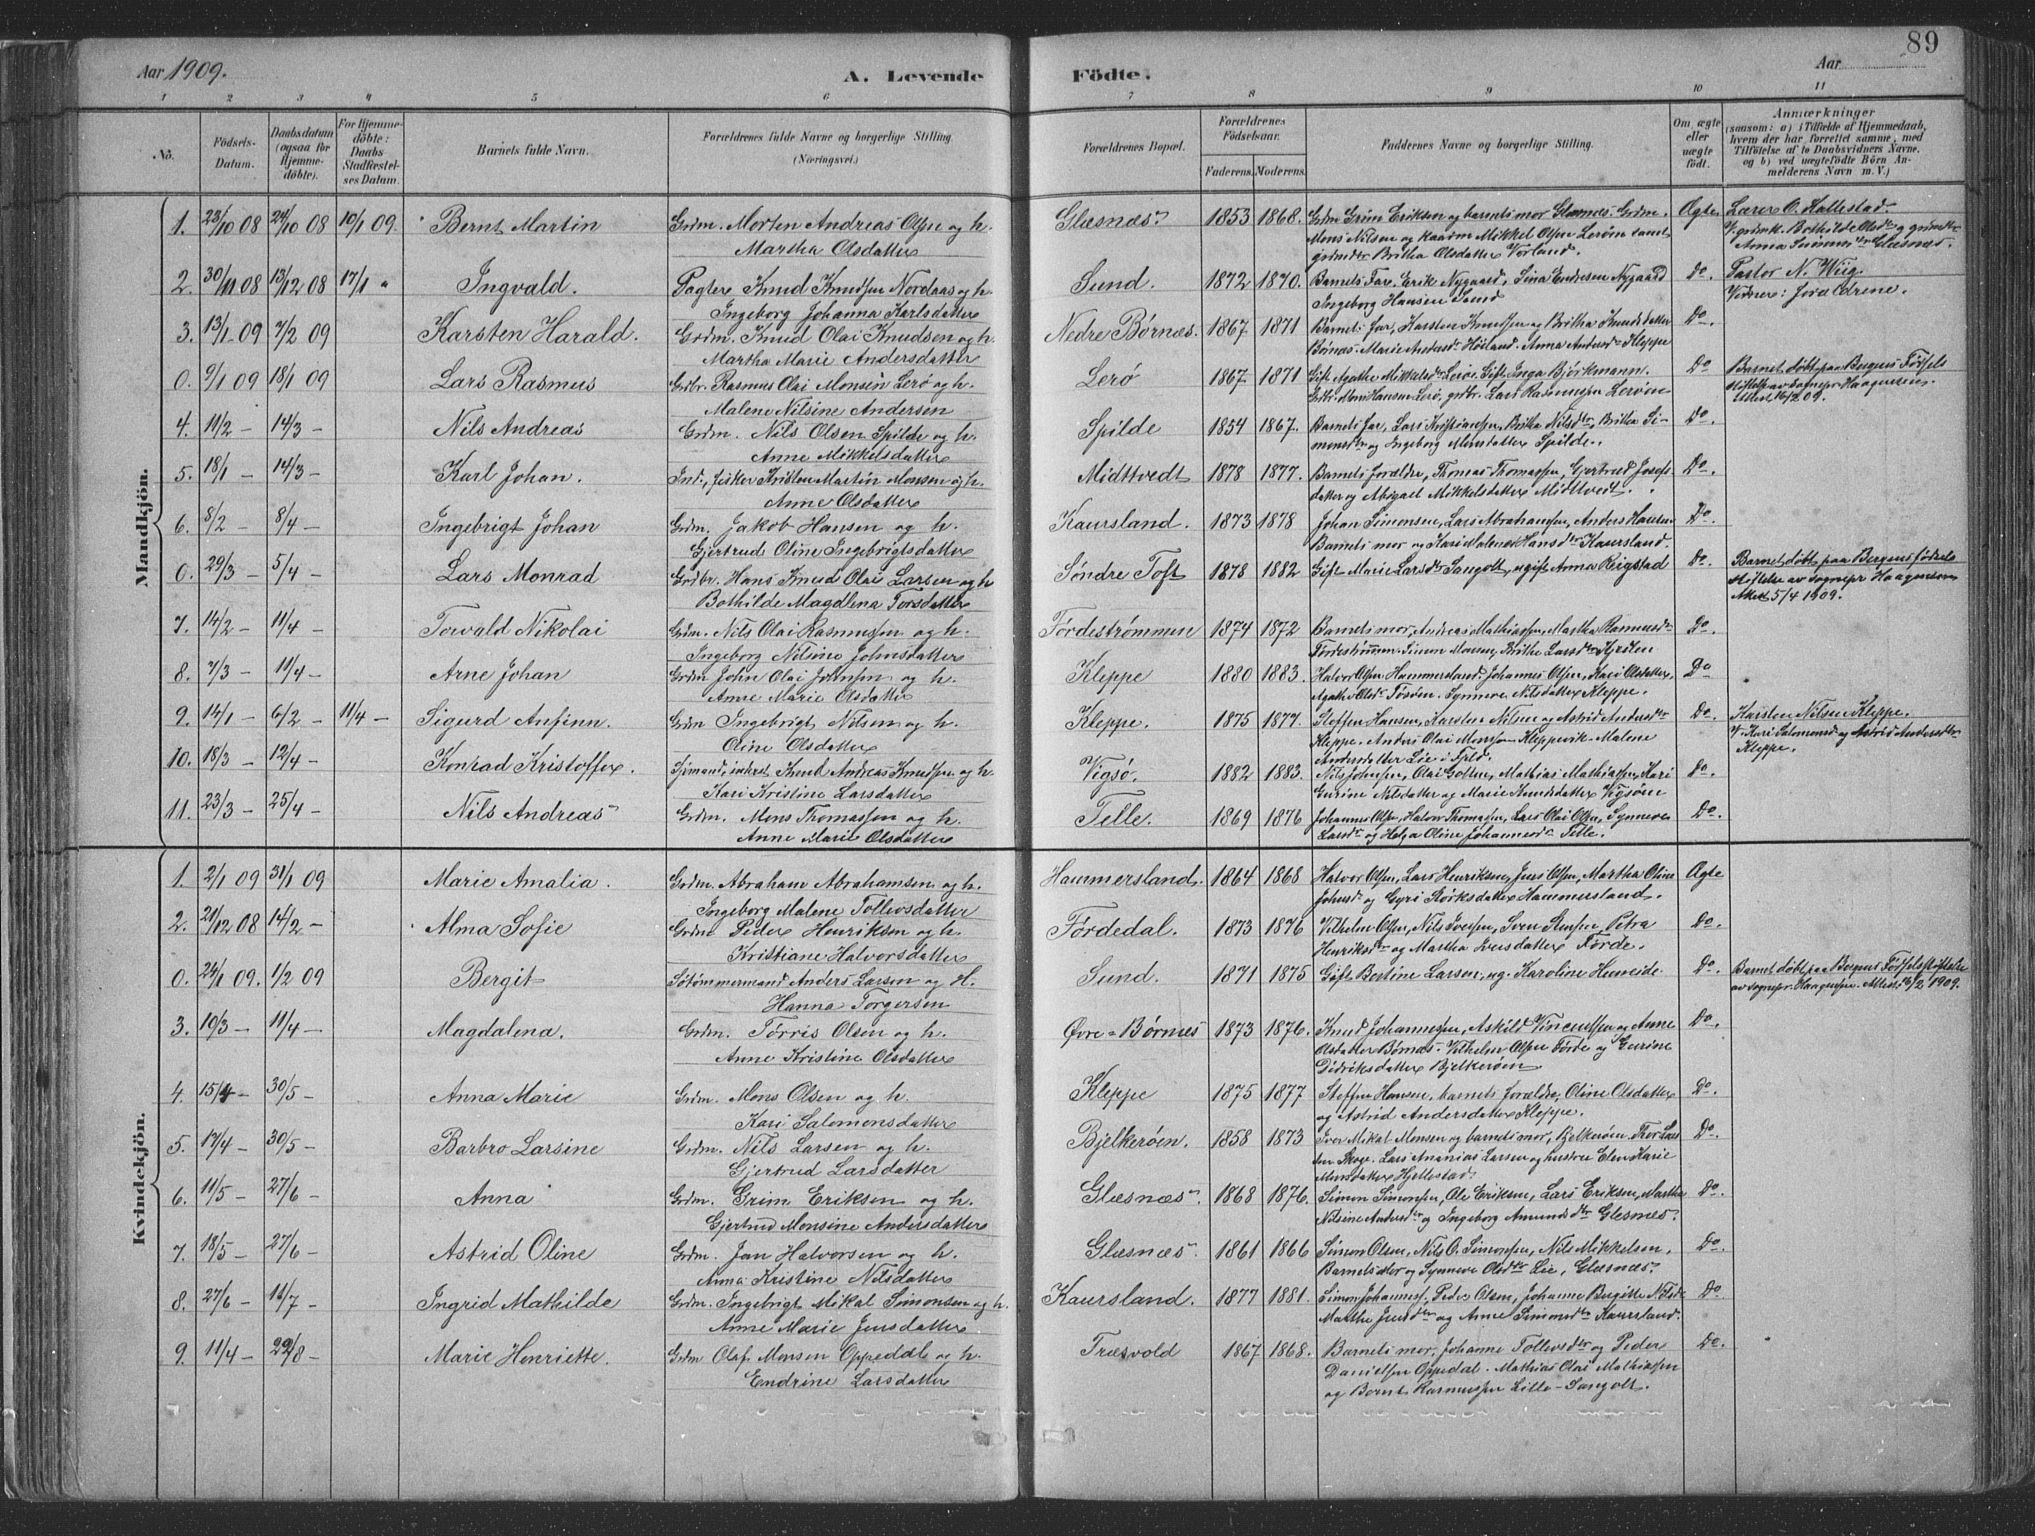 89
Aar 1909. A. Levende Födte. Aar
1 2 3 4 5 6 7 8 9 10 11
No. Födsels-Datum. Daabsdatum (ogsaa for Hjemmedöbte). For Hjemmedöbte: Daabs Stadfæstelses Datum. Barnets fulde Navn. Forældrenes fulde Navne og borgerlige Stilling (Næringsvei.) Forældrenes Bopæl. Forældrenes Födselsaar. Faderens. Moderens. Faddernes Navne og borgerlige Stilling. Om ægte eller uægte födt. Anmærkninger (saasom: a) i Tilfælde af Hjemmedaab, hvem der har forrettet samme, med Tilföielse af to Daabsvidners Navne, og b) ved uægtefödte Börn Anmelderens Navn m. V.)
Mandkjön.
1. 23/10 08 24/10 08 10/1 09. Bernt Martin Grdm. Morten Andreas Olsen og h. Glæsnæs 1853 1868. Grdm Grim Eriksen og barnets mor Glæsnæs. Grdm. Ægte Lærer O. Hallestad.
Martha Olsdatter Mons Nilsen og kaarm Mikkel Olsen Lerøen samt
grdm Britha Olsdatter Vorland. Anna Glæsnæs.
2. 30/11 08 13/12 08 17/1 " Ingvald. Pagter Knud Knudsen Nordaas og h. Sund. 1872 1870. Barnets Far. Erik Nygaard, Sina Endresen Nygaard Do. Pastor N. Wiig.
Ingeborg Johanna Karlsdatter Ingeborg Hansen Sund Vidner:
3. 13/1 09 7/2 09 Karsten Harald. Grdm. Knud Olai Knudsen og h. Nedre Børnæs. 1867 1871 Barnets far, Karsten Knudsen og Britha Knudsdatter Do.
Martha Marie Andersdatter Børnæs. Marie Andersdr Høiland. Anna Andersdr Kleppe
0. 9/1 09 18/1 09 Lars Rasmus Grdbr. Rasmus Olai Monsen Lerø og h. Lerø 1867. 1871 Gift Agathe Mikkelsdr Lerøe. Gift Inga Bjørkmann. Do Barnet døbt paa Bergens Fødsels
Malene Nilsine Andersen Grbr. Mons Hansen Lerø, grdbr. Lars Rasmussen Lerøen stiftelse av sognepr Haagensen.
Attest 16/2 09.
4. 11/2 – 14/3 – Nils Andreas Grdm. Nils Olsen Spilde og h. Spilde 1854 1867. Barnets far, Lars Kristiansen, Britha Nilsdtr, Britha Si- Do.
Anne Mikkelsdatter monsdtr og Ingeborg Monsdatter Spilde.
5. 18/1 – 14/3 – Karl Johan. Ind., fisker Kristen Martin Monsen og h. Midttvedt 1878 1877. Barnets forældre, Thomas Thomassen, Gjertrud Josefs- Do.
Anne Olsdatter datter og Abigael Mikkelsdatter Midttvedt.
6. 8/2 – 8/4 – Ingebrigt Johan Grdm. Jakob Hansen og h. Kaursland. 1873 1878 Johan Simonsen, Lars Abrahamsen, Anders Hansen Do.
Gjertrud Oline Ingebrigtsdatter Barnets mor og Kari Malene Hansdtr Kaursland.
0. 29/3 – 5/4 – Lars Monrad Grdbr. Hans Knud Olai Larsen og h Søndre Toft 1878 1882 Gift Marie Larsdtr Sangolt, ugift Anna Reigstad Do. Barnet døbt paa Bergens fødsels
Bothilde Magdlena Torsdatter stiftelse av sognepr Haagensen
Attest 5/4 1909.
7. 14/2 – 11/4 – Torvald Nikolai Grdm. Nils Olai Rasmussen og h. Førdestrømmen 1874 1872 Barnets mor, Andreas Mathiassen, Martha Rasmusdr Do.
Ingeborg Nilsine Johnsdatter Førdestrømmen. Simon Monsen, Brithe Larsdtr
8. 7/3 – 11/4 – Arne Johan Grdm John Olai Johnsen og h. Kleppe 1880 1883. Halvor Olsen Hammersland. Johannes Olsen, Kari Olsdatter, Do
Anne Marie Olsdatter Agathe Olsdr. Synnøve Nilsdatter Kleppe.
9. 14/1 – 6/2 – 11/4 – Sigurd Anfinn. Grdm Ingebrigt Nilsen og h. Kleppe. 1875 1877. Stoffer Hansen, Karsten Nilsen og Astrid Andersdtr Do. Karsten Nilsen Kleppe.
Oline Olsdatter Kleppe. Anders Olai Monssen Kleppevik. Malene Kari Salomonsd og Astrid Andersdtr
Andersdatter Lie i Fjeld. Kleppe.
10. 18/3 – 12/4 – Konrad Kristoffer. Sjømand, inderst Knud Andreas Knudsen og h Vigsø. 1882 1883. Nils Johnsen, Olai Golten, Mathias Mathiassen, Kari Do.
Kari Kristine Larsdatter Gurine Nilsdatter og Marie Knudsdatter Vigsøen
11. 23/3 – 25/4 – Nils Andreas Grdm. Mons Thomassen og h. Telle. 1869 1876 Johannes Olsen, Halvor Thomassen, Lars Olai Olsen, Synneve Do.
Anne Marie Olsdatter Larsdtr og Helga Oline Johannesdr Telle.
Kvindekjön.
1. 2/1 09 31/1 09 Marie Amalia. Grdm. Abraham Abrahamsen og h. Hammersland. 1864 1868 Halvor Olsen, Lars Henriksen, Jens Olsen, Martha Oline Ægte
Ingeborg Malene Tollevsdatter Johnsdr og Gyri Størksdatter Hammersland.
2. 21/12 08 14/2 – Alma Sofie Grdm Peder Henriksen og h. Førdedal. 1873 1876 Vilhelm Olsen, Nils Iversen, Sven Petra Do.
Kristiane Halvorsdatter Henriksdtr og Martha Iversdatter Førde.
0. 24/1 09. 1/2 09 Bergit Støtømmermand Anders Larsen og H. Sund. 1871 1875 Gift Bertine Larsen, ug. Karoline Do. Barnet døbt paa Bergens Fødselsstiftelse
Hanna Torgersen av sognepr. Haagensen. Attest 19/2 1909.
3. 10/3 – 11/4 – Magdalena. Grdm. Tørris Olsen og h. Øvre-Børnes 1873 1876. Knud Johannessen, Askild Vincentsen og Anne Do.
Anne Kristine Olsdatter Olsdatter Børnæs. Vilhelm Olsen Førde og Gurine
Didriksdatter Bjelkerøen
4. 15/4 – 30/5 – Anna Marie Grdm. Mons Olsen og h. Kleppe 1875 1877 Stoffer Hansen, barnets forældre, Oline Olsdatter Do.
Kari Salomonsdatter og Astrid Andersdatter Kleppe.
5. 17/4 – 30/5 – Barbro Larsine Grdm. Nils Larsen og h. Bjelkerøen. 1858 1873 Iver Mikal Monsen og barnets mor, Bjelkerøen. Do.
Gjertrud Larsdatter Skoge. Lars Ananias Larsen og hustru Elen Karie
Monsdatter Hjellestad.
6. 11/5 – 27/6 – Anna Grdm. Grim Eriksen og h. Glæsnæs 1868 1876. Simon Simonsen, Ole Eriksen, Lars Eriksen, Martha Do.
Gjertrud Monsine Andersdatter Nilsine Andersdtr og Ingeborg Amundsdtr Glesnæs.
7. 18/5 – 27/6 – Astrid Oline Grdm. Jan Halvorsen og h. Glæsnæs 1861 1866 Simon Olsen, Nils O. Simonsen, Nils Mikkelsen, Do.
Anna Kristine Nilsdatter Barnets mor og Synneve Olsdtr Lie, Glæsnæs.
8. 27/6 – 11/7 – Ingrid Mathilde Grdm. Ingebrigt Mikal Simonsen og h. Kaursland. 1877 1881. Simon Johannes, Peder Olsen, Johanne Birgitte Do.
Anne Marie Jensdatter Marthe Jensdtr og Anne Simonsdtr Kaursland.
9. 11/4 – 22/8 – Marie Henriette. Grdm Olaf Monsen Oppedal og h. Træsvold 1867 1868. Barnets mor, Johanne Tollevsdtr og Peder Do.
Endrine Larsdatter Danielsen Oppedal. Mathias Olai Mathiassen
og Bernt Rasmussen Lille-Sangolt.